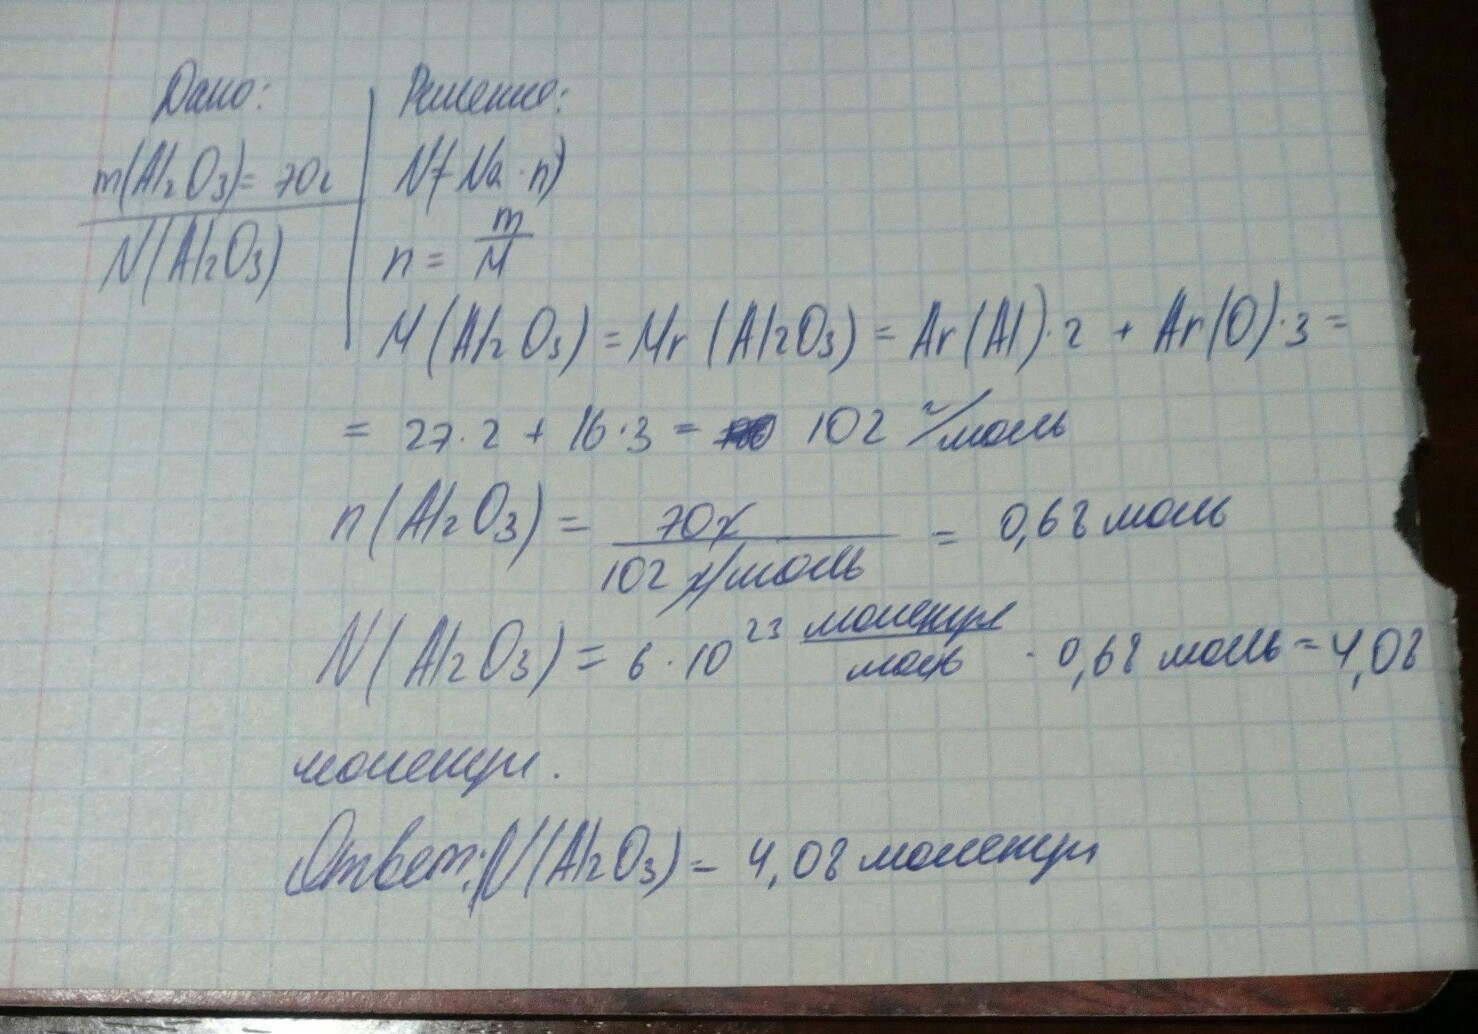 Дано:
Решение:
m(Al₂O₃)= 70г
N(Al₂O₃)
N= Na · n)
n = m/M
M(Al₂O₃) = Mr (Al₂O₃) = Ar(Al)·2 + Ar(O)·3 =
= 27·2 + 16·3 = 102 г/моль
n(Al₂O₃) = 70г / 102 г/моль = 0,68 моль
N(Al₂O₃) = 6·10²³ молекул/моль · 0,68 моль = 4,08
молекул.
Ответ: N(Al₂O₃) = 4,08 молекул